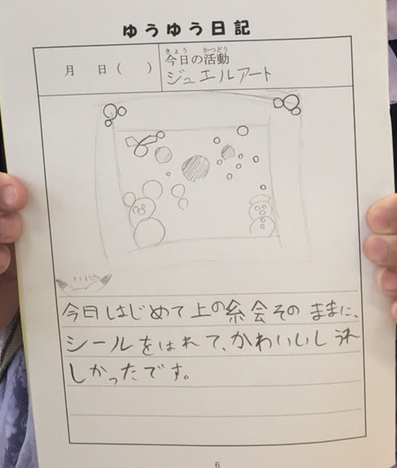 ゆうゆう日記
月 日( )
きょう かつどう
今日の活動
ジュエルアート
今日はじめて上の絵そのままに、
シールをはれて、かわいいしうれ
しかったです。
6